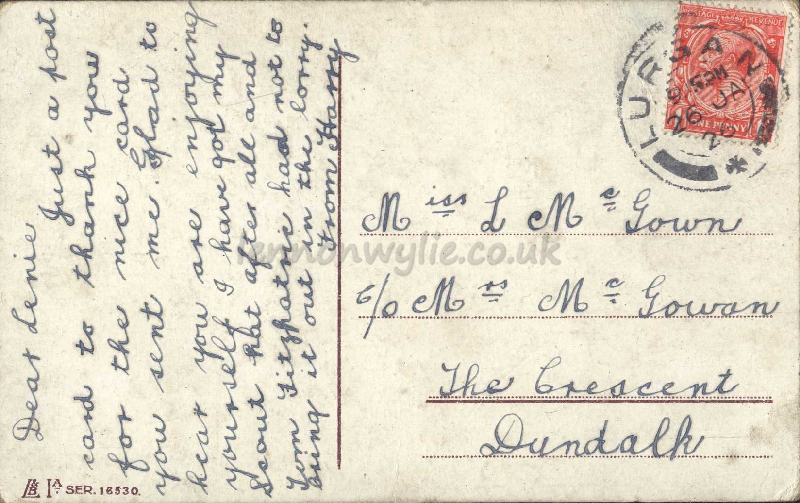 Dear Lenie
Just a post
card to thank you
for the nice card
you sent me. Glad to
hear you are enjoying
yourself I have got my
Scout hat after all and
Tom Fitzpatric had not to
bring it out in the lorry.
From Harry
Miss L McGown
c/o Mrs McGowan
The Crescent
Dundalk
POSTAGE REVENUE
ONE PENNY
LURGAN
26 JA
SER. 16530.
lennonwylie.co.uk